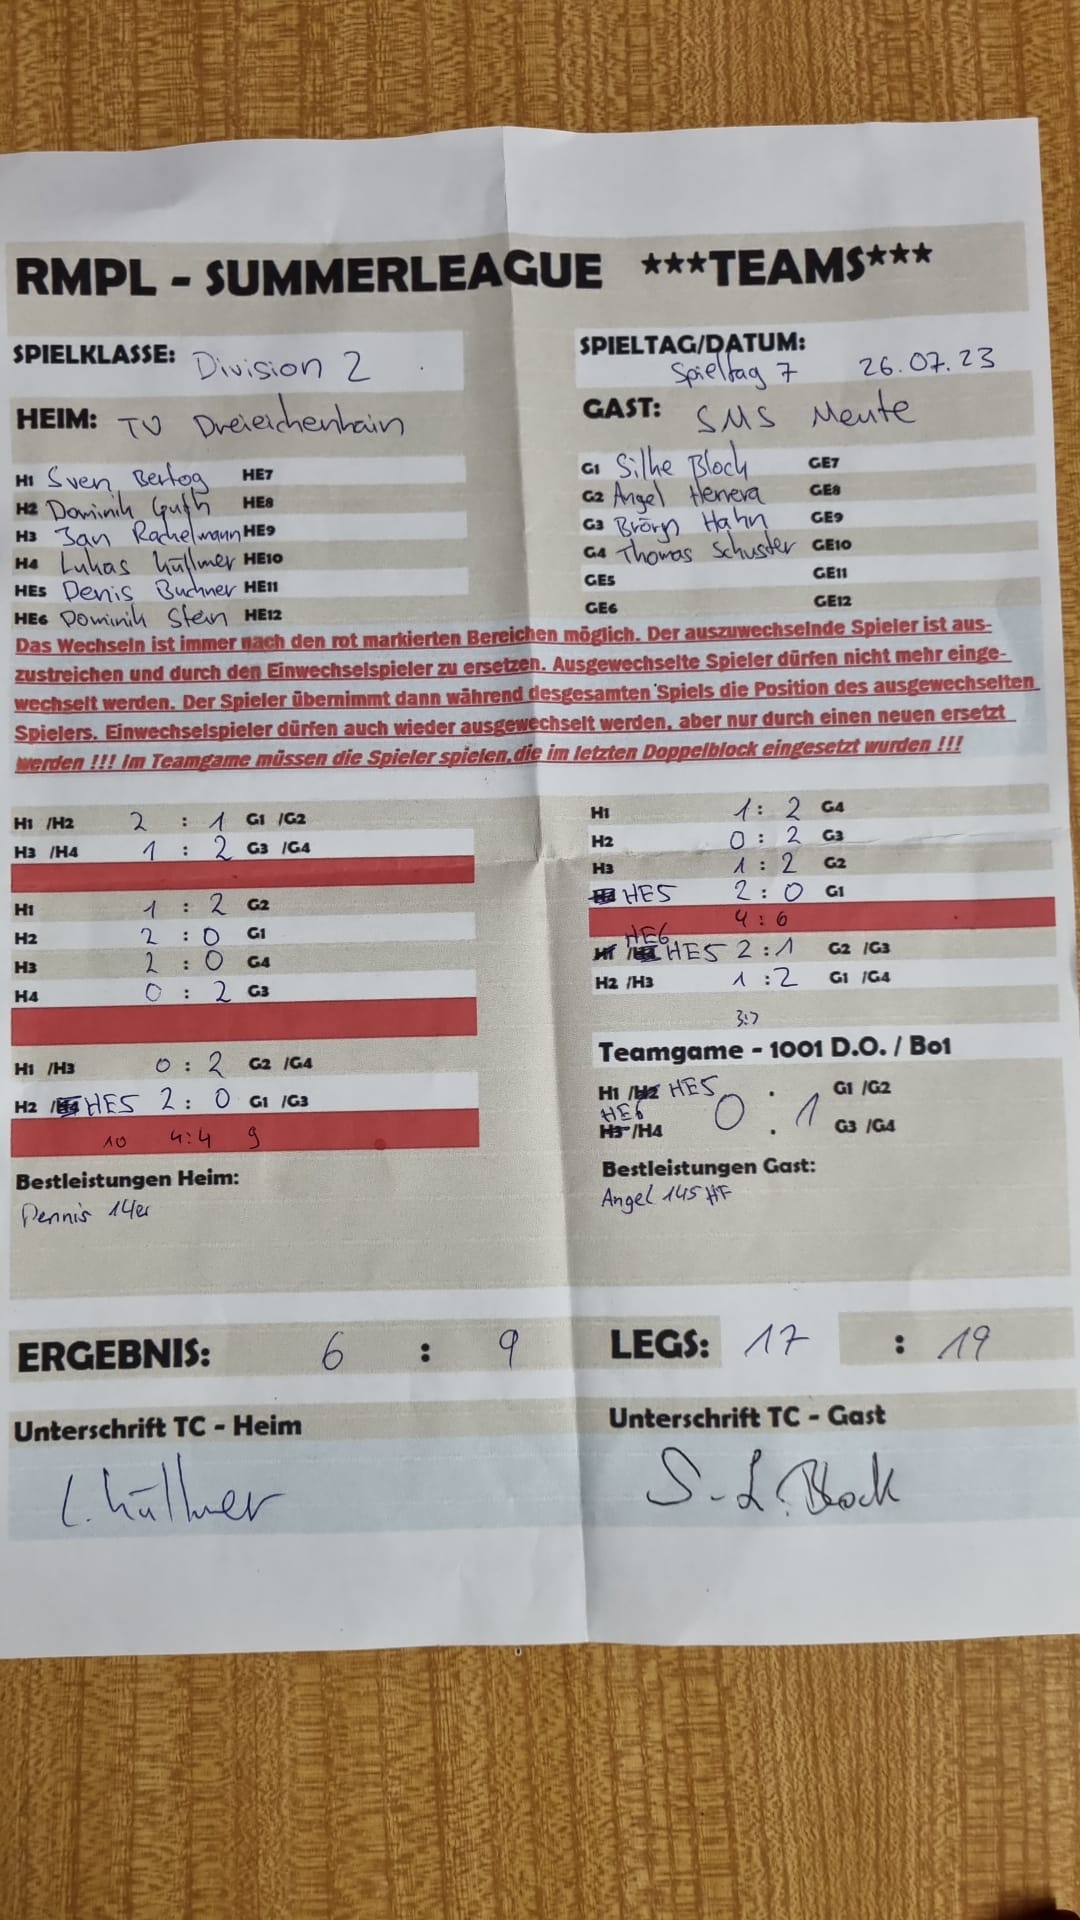 RMPL - SUMMERLEAGUE ***TEAMS***
SPIELKLASSE: Division 2
SPIELTAG/DATUM: Spieltag 7 26.07.23
HEIM: TV Dreieichenhain
GAST: SMS Meute
H1 Sven Bertog HE7
H2 Dominik Guth HE8
H3 Jan Rachelmann HE9
H4 Lukas Küllmer HE10
HE5 Denis Buchner HE11
HE6 Dominik Stein HE12
G1 Silke Block GE7
G2 Angel Herrera GE8
G3 Brörn Hahn GE9
G4 Thomas Schuster GE10
GE5 GE11
GE6 GE12
Das Wechseln ist immer nach den rot markierten Bereichen möglich. Der auszuwechselnde Spieler ist aus-
zustreichen und durch den Einwechselspieler zu ersetzen. Ausgewechselte Spieler dürfen nicht mehr einge-
wechselt werden. Der Spieler übernimmt dann während desgesamten Spiels die Position des ausgewechselten
Spielers. Einwechselspieler dürfen auch wieder ausgewechselt werden, aber nur durch einen neuen ersetzt
werden !!! Im Teamgame müssen die Spieler spielen, die im letzten Doppelblock eingesetzt wurden !!!
H1 /H2 2 : 1 G1 /G2
H3 /H4 1 : 2 G3 /G4
H1 1 : 2 G2
H2 2 : 0 G1
H3 2 : 0 G4
H4 0 : 2 G3
H1 /H3 0 : 2 G2 /G4
H2 / HE5 2 : 0 G1 /G3
10 4:4 9
Bestleistungen Heim:
Dennis 14er
H1 1 : 2 G4
H2 0 : 2 G3
H3 1 : 2 G2
HE5 2 : 0 G1
4 : 6
HE6
H1 / HE5 2 : 1 G2 /G3
H2 /H3 1 : 2 G1 /G4
3:3
Teamgame - 1001 D.O. / Bo1
H1 /H2 HE5 0 : 1 G1 /G2
HE6
H3 /H4 G3 /G4
Bestleistungen Gast:
Angel 145 HF
ERGEBNIS: 6 : 9
LEGS: 17 : 19
Unterschrift TC - Heim
Unterschrift TC - Gast
L. Küllmer
S-L. Block